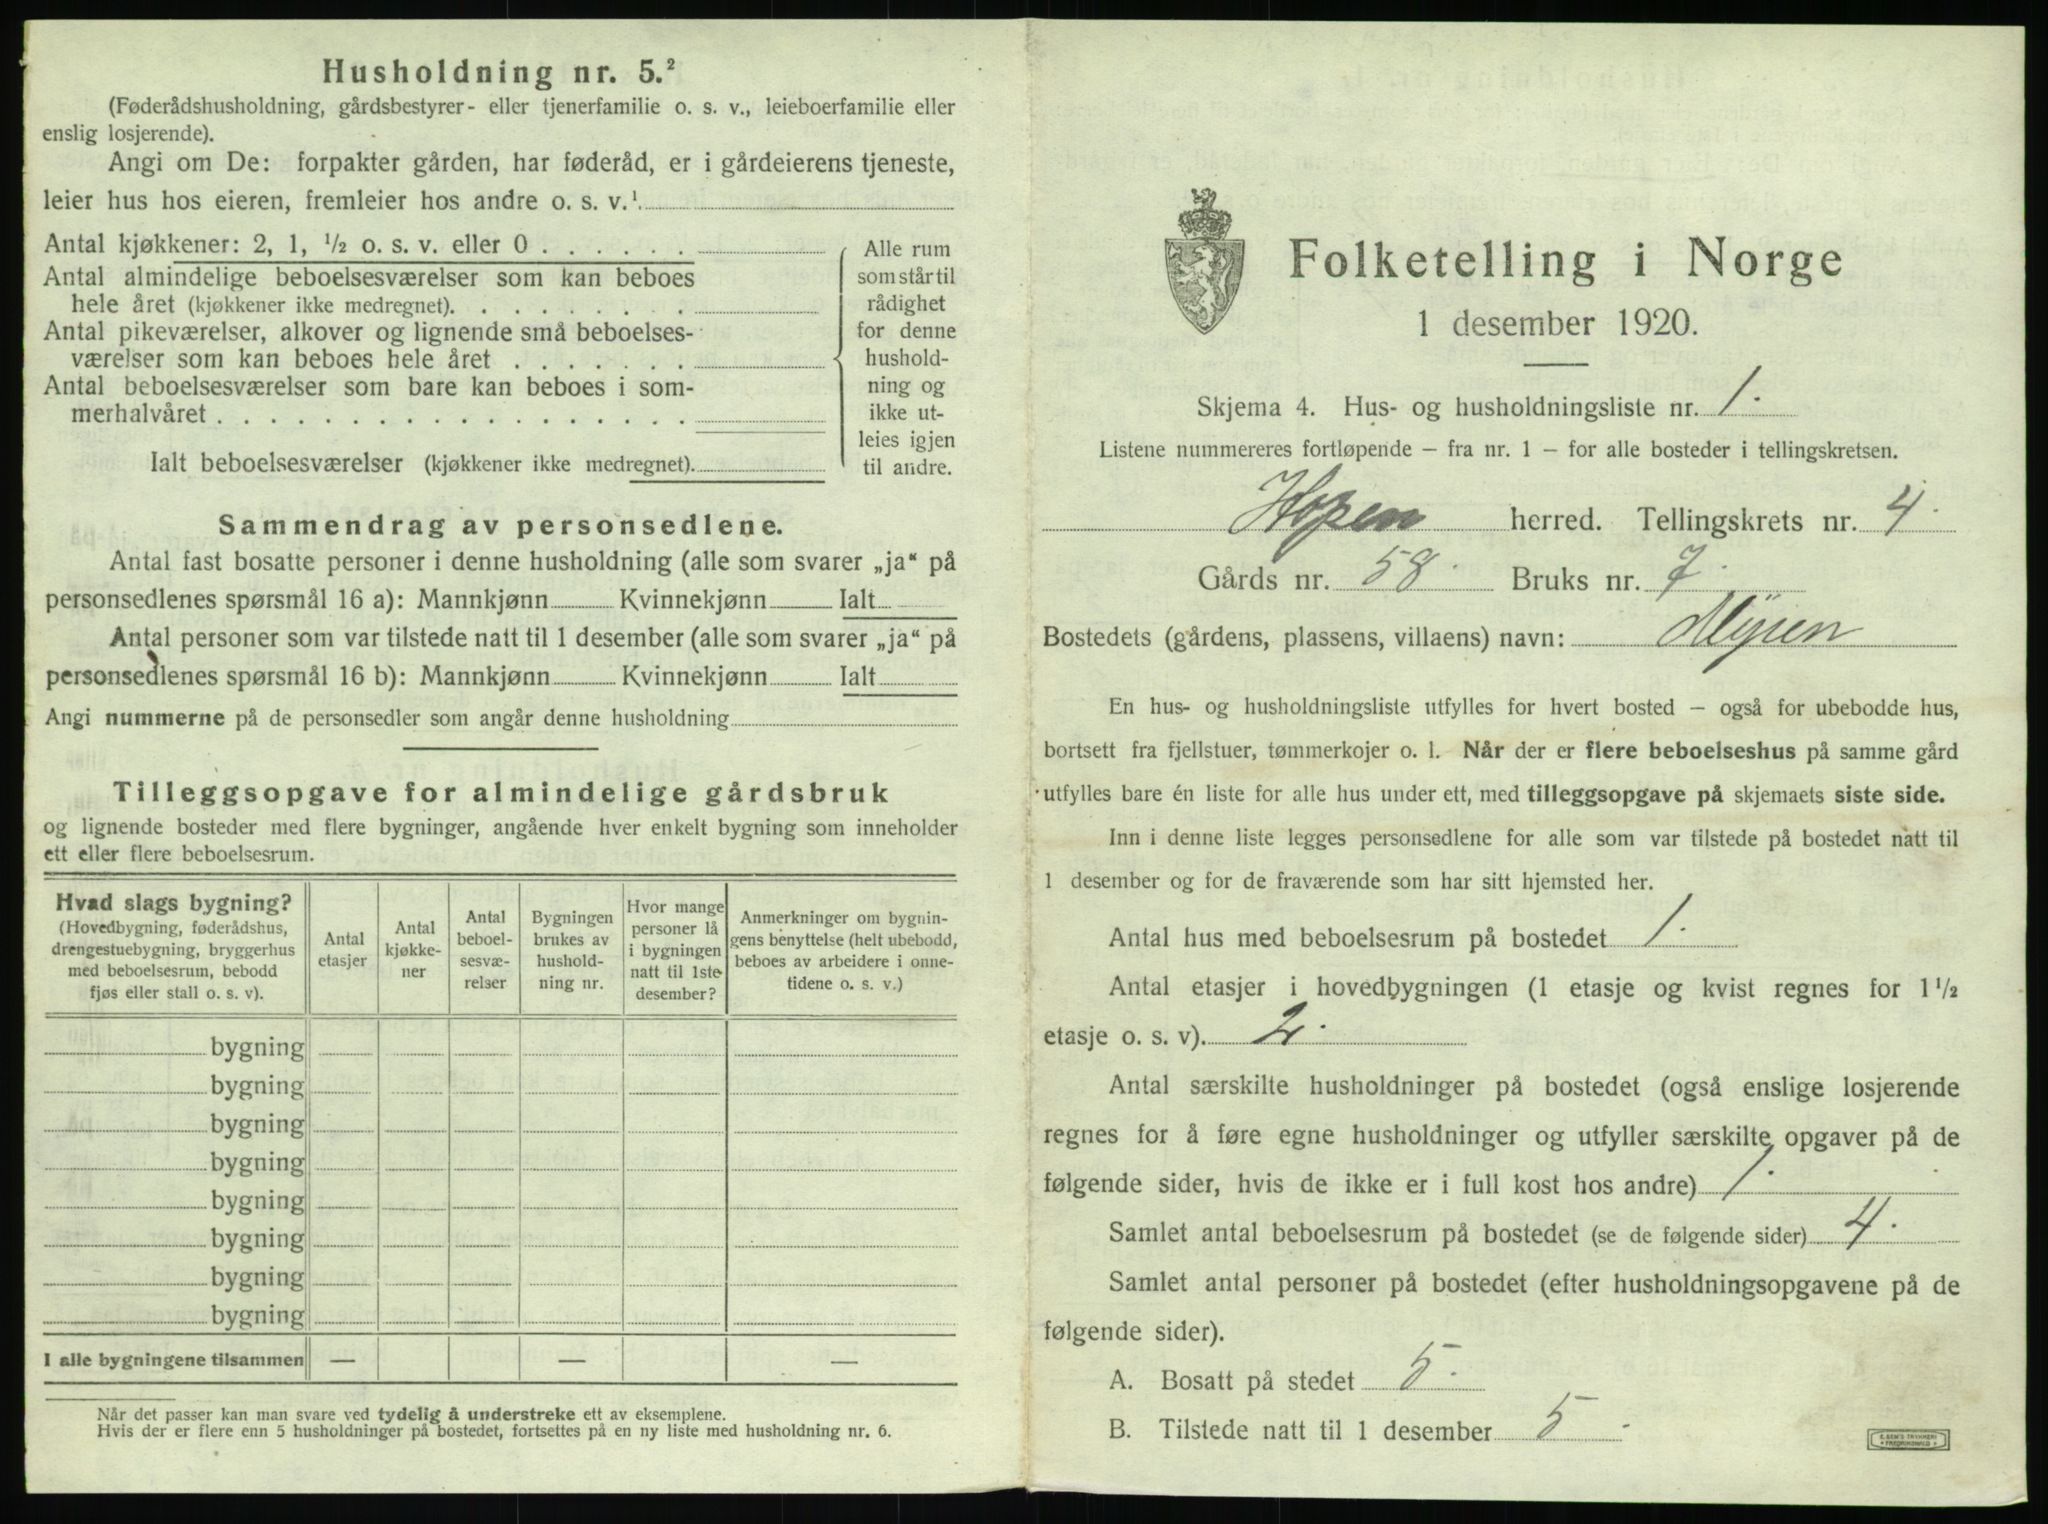 Husholdning nr. 5.²
(Føderådshusholdning, gårdsbestyrer- eller tjenerfamilie o. s. v., leieboerfamilie eller
enslig losjerende).
Angi om De: forpakter gården, har føderåd, er i gårdeierens tjeneste,
leier hus hos eieren, fremleier hos andre o. s. v.¹
Antal kjøkkener: 2, 1, ½ o. s. v. eller 0 . . . . . .
Antal almindelige beboelsesværelser som kan beboes
hele året (kjøkkener ikke medregnet). . . . . . . . .
Antal pikeværelser, alkover og lignende små beboelses-
værelser som kan beboes hele året . . . . . . .
Antal beboelsesværelser som bare kan beboes i som-
merhalvåret . . . . . . . . . . . . . . . . . .
Ialt beboelsesværelser (kjøkkener ikke medregnet).
Alle rum
som står til
rådighet
for denne
hushold-
ning og
ikke ut-
leies igjen
til andre.
Sammendrag av personsedlene.
Antal fast bosatte personer i denne husholdning (alle som svarer „ja“ på
personsedlenes spørsmål 16 a): Mannkjønn Kvinnekjønn Ialt
Antal personer som var tilstede natt til 1 desember (alle som svarer „ja“ på
personsedlenes spørsmål 16 b): Mannkjønn Kvinnekjønn Ialt
Angi nummerne på de personsedler som angår denne husholdning
Tilleggsopgave for almindelige gårdsbruk
og lignende bosteder med flere bygninger, angående hver enkelt bygning som inneholder
ett eller flere beboelsesrum.
Hvad slags bygning?
(Hovedbygning, føderådshus,
drengestuebygning, bryggerhus
med beboelsesrum, bebodd
fjøs eller stall o. s. v).
Antal
etasjer
Antal
kjøkke-
ner
Antal
beboel-
sesvæ-
relser
Bygningen
brukes av
hushold-
ning nr.
Hvor mange
personer lå
i bygningen
natt til 1ste
desember?
Anmerkninger om bygnin-
gens benyttelse (helt ubebodd,
beboes av arbeidere i onne-
tidene o. s. v.)
bygning
bygning
bygning
bygning
bygning
bygning
bygning
bygning
I alle bygningene tilsammen — — —
Når det passer kan man svare ved tydelig å understreke ett av eksemplene.
Hvis der er flere enn 5 husholdninger på bostedet, fortsettes på en ny liste med husholdning nr. 6.
Folketelling i Norge
1 desember 1920.
Skjema 4. Hus- og husholdningsliste nr. 1.
Listene nummereres fortløpende – fra nr. 1 – for alle bosteder i tellingskretsen.
Hopen herred. Tellingskrets nr. 4.
Gårds nr. 58. Bruks nr. 7.
Bostedets (gårdens, plassens, villaens) navn: Myren
En hus- og husholdningsliste utfylles for hvert bosted – også for ubebodde hus,
bortsett fra fjellstuer, tømmerkojer o. l. Når der er flere beboelseshus på samme gård
utfylles bare én liste for alle hus under ett, med tilleggsopgave på skjemaets siste side.
Inn i denne liste legges personsedlene for alle som var tilstede på bostedet natt til
1 desember og for de fraværende som har sitt hjemsted her.
Antal hus med beboelsesrum på bostedet 1.
Antal etasjer i hovedbygningen (1 etasje og kvist regnes for 1½
etasje o. s. v). 2.
Antal særskilte husholdninger på bostedet (også enslige losjerende
regnes for å føre egne husholdninger og utfyller særskilte opgaver på de
følgende sider, hvis de ikke er i full kost hos andre) 1.
Samlet antal beboelsesrum på bostedet (se de følgende sider) 4.
Samlet antal personer på bostedet (efter husholdningsopgavene på de
følgende sider).
A. Bosatt på stedet 5.
B. Tilstede natt til 1 desember 5.